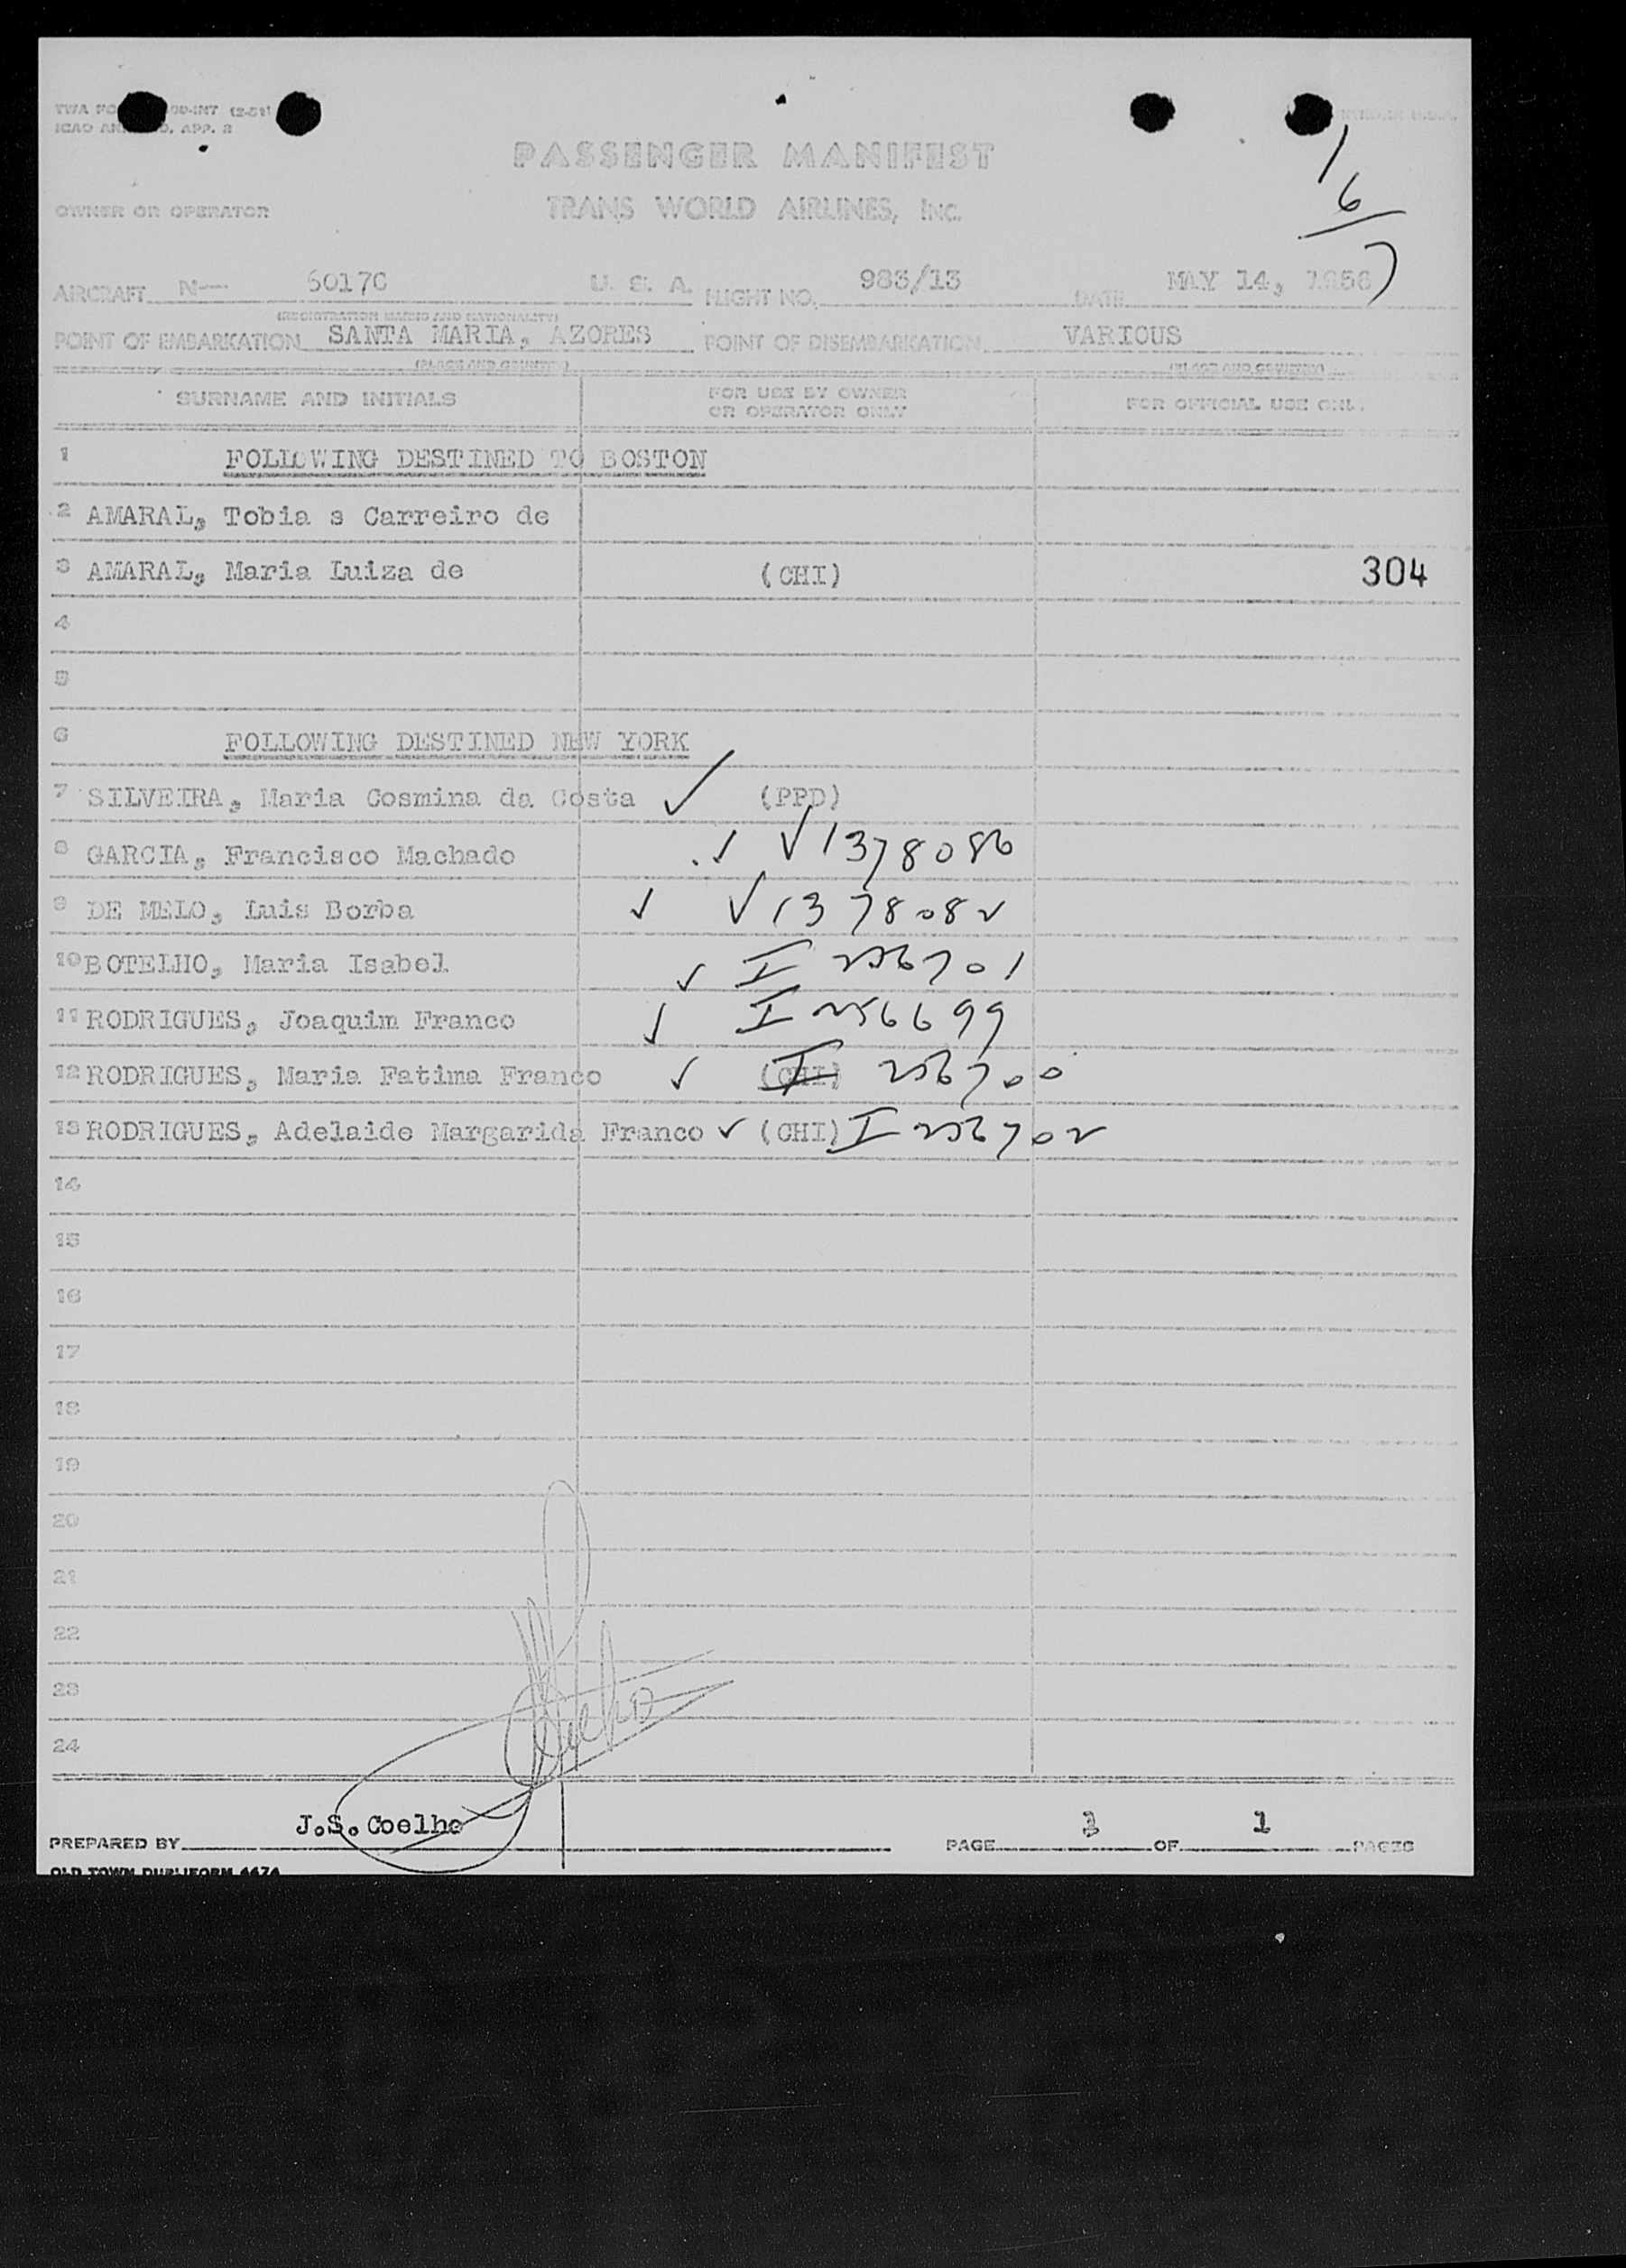 TWA FO 00-INT (2-51)
ICAO AN 9, APP. 2
PASSENGER MANIFEST
OWNER OR OPERATOR TRANS WORLD AIRLINES, INC.
1
6
7
AIRCRAFT N— 6017C U. S. A. FLIGHT NO. 983/13 DATE MAY 14, 1956
(REGISTRATION MARKS AND NATIONALITY)
POINT OF EMBARKATION SANTA MARIA, AZORES POINT OF DISEMBARKATION VARIOUS
(PLACE AND COUNTRY) (PLACE AND COUNTRY)
SURNAME AND INITIALS FOR USE BY OWNER OR OPERATOR ONLY FOR OFFICIAL USE ONL
1 FOLLOWING DESTINED TO BOSTON
2 AMARAL, Tobia s Carreiro de
3 AMARAL, Maria Luiza de (CHI) 304
4
5
6 FOLLOWING DESTINED NEW YORK
7 SILVEIRA, Maria Cosmina da Costa ✓ (PPD)
8 GARCIA, Francisco Machado ✓ V1378086
9 DE MELO, Luis Borba ✓ V1378082
10 BOTELHO, Maria Isabel ✓ I 256701
11 RODRIGUES, Joaquim Franco ✓ I 256699
12 RODRIGUES, Maria Fatima Franco ✓ (CHI) I 256700
13 RODRIGUES, Adelaide Margarida Franco ✓ (CHI) I 256702
14
15
16
17
18
19
20
21
22
23
24
PREPARED BY J.S.Coelho PAGE 1 OF 1 PAGES
OLD TOWN DUPLIFORM 4474